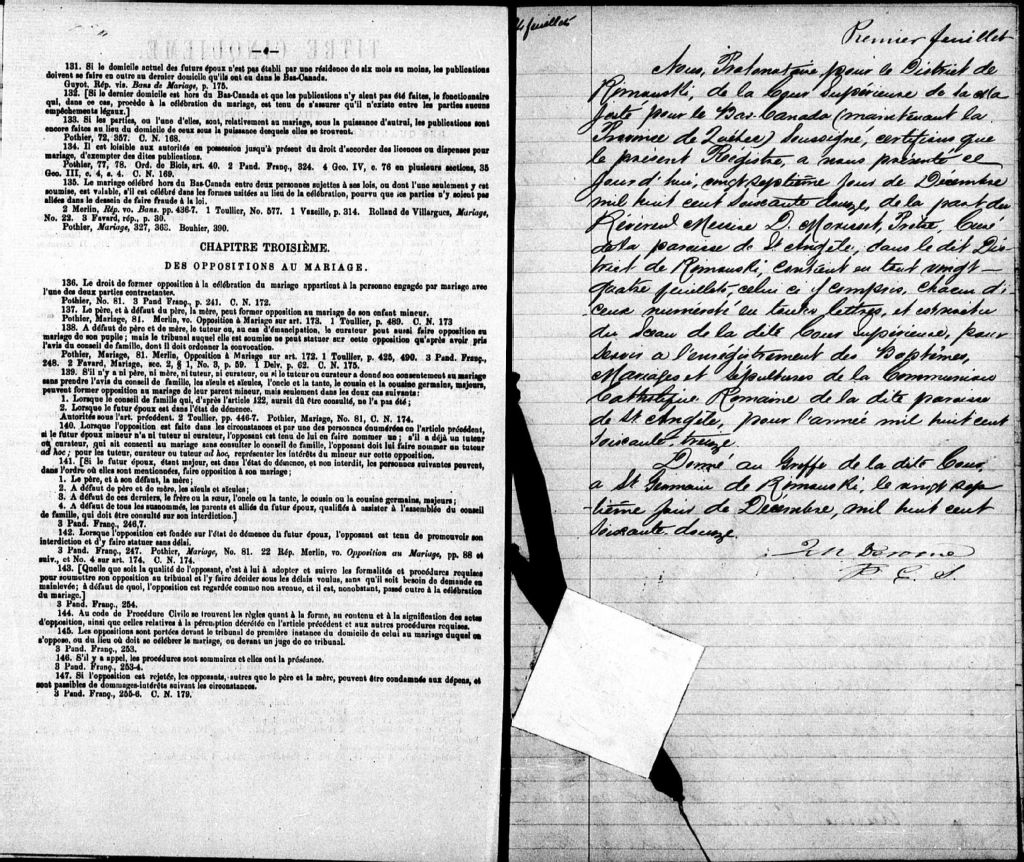 —4—
131. Si le domicile actuel des futurs époux n'est pas établi par une résidence de six mois au moins, les publications
doivent se faire en outre au dernier domicile qu'ils ont eu dans le Bas-Canada.
Guyot. Rép. vis. Bans de Mariage, p. 175.
132. [Si le dernier domicile est hors du Bas-Canada et que les publications n'y aient pas été faites, le fonctionnaire
qui, dans ce cas, procède à la célébration du mariage, est tenu de s'assurer qu'il n'existe entre les parties aucuns
empêchements légaux.]
133. Si les parties, ou l'une d'elles, sont, relativement au mariage, sous la puissance d'autrui, les publications sont
encore faites au lieu du domicile de ceux sous la puissance desquels elles se trouvent.
Pothier, 72, 357. C. N. 168.
134. Il est loisible aux autorités en possession jusqu'à présent du droit d'accorder des licences ou dispenses pour
mariage, d'exempter des dites publications.
Pothier, 77, 78. Ord. de Blois, art. 40. 2 Pand. Franç., 324. 4 Geo. IV, c. 76 en plusieurs sections, 35
Geo. III, c. 4, s. 4. C. N. 169.
135. Le mariage célébré hors du Bas-Canada entre deux personnes sujettes à ses lois, ou dont l'une seulement y est
soumise, est valable, s'il est célébré dans les formes usitées au lieu de la célébration, pourvu que les parties n'y soient pas
allées dans le dessein de faire fraude à la loi.
2 Merlin, Rép. vo. Bans. pp. 436-7. 1 Toullier, No. 577. 1 Vazeille, p. 314. Rolland de Villargues, Mariage,
No. 22. 3 Favard, rép., p. 30.
Pothier, Mariage, 327, 363. Bouhier, 390.
CHAPITRE TROISIÈME.
DES OPPOSITIONS AU MARIAGE.
136. Le droit de former opposition à la célébration du mariage appartient à la personne engagée par mariage avec
l'une des deux parties contractantes.
Pothier, No. 81. 3 Pand Franç., p. 241. C. N. 172.
137. Le père, et à défaut du père, la mère, peut former opposition au mariage de son enfant mineur.
Pothier, Mariage, 81. Merlin, vo. Opposition à Mariage sur art. 173. 1 Toullier, p. 489. C. N. 173
138. A défaut de père et de mère, le tuteur ou, au cas d'émancipation, le curateur peut aussi faire opposition au
mariage de son pupille; mais le tribunal auquel elle est soumise ne peut statuer sur cette opposition qu'après avoir pris
l'avis du conseil de famille, dont il doit ordonner la convocation.
Pothier, Mariage, 81. Merlin, Opposition à Mariage sur art. 172. 1 Toullier, p. 425, 490. 3 Pand. Franç.,
248. 2 Favard, Mariage, sec. 2, § 1, No. 3, p. 59. 1 Delv. p. 62. C. N. 175.
139. S'il n'y a ni père, ni mère, ni tuteur, ni curateur, ou si le tuteur ou curateur a donné son consentement au mariage
sans prendre l'avis du conseil de famille, les aïeuls et aïeules, l'oncle et la tante, le cousin et la cousine germains, majeurs,
peuvent former opposition au mariage de leur parent mineur, mais seulement dans les deux cas suivants:
1. Lorsque le conseil de famille qui, d'après l'article 122, aurait dû être consulté, ne l'a pas été;
2. Lorsque le futur époux est dans l'état de démence.
Autorités sous l'art. précédent. 2 Toullier. pp. 446-7. Pothier, Mariage, No. 81, C. N. 174.
140. Lorsque l'opposition est faite dans les circonstances et par une des personnes énumérées en l'article précédent,
si le futur époux mineur n'a ni tuteur ni curateur, l'opposant est tenu de lui en faire nommer un; s'il a déjà un tuteur
ou curateur, qui ait consenti au mariage sans consulter le conseil de famille, l'opposant doit lui faire nommer un tuteur
ad hoc; pour les tuteur, curateur ou tuteur ad hoc, représenter les intérêts du mineur sur cette opposition.
141. [Si le futur époux, étant majeur, est dans l'état de démence, et non interdit, les personnes suivantes peuvent,
dans l'ordre où elles sont mentionnées, faire opposition à son mariage;
1. Le père, et à son défaut, la mère;
2. A défaut de père et de mère, les aïeuls et aïeules;
3. A défaut de ces derniers, le frère ou la sœur, l'oncle ou la tante, le cousin ou la cousine germains, majeurs;
4. A défaut de tous les susnommés, les parents et alliés du futur époux, qualifiés à assister à l'assemblée du conseil
de famille, qui doit être consulté sur son interdiction.]
3 Pand. Franç., 246,7.
142. Lorsque l'opposition est fondée sur l'état de démence du futur époux, l'opposant est tenu de promouvoir son
interdiction et d'y faire statuer sans délai.
3 Pand. Franç., 247. Pothier, Mariage, No. 81. 22 Rép. Merlin, vo. Opposition au Mariage, pp. 88 et
suiv., et No. 4 sur art. 174. C. N. 174.
143. [Quelle que soit la qualité de l'opposant, c'est à lui à adopter et suivre les formalités et procédures requises
pour soumettre son opposition au tribunal et l'y faire décider sous les délais voulus, sans qu'il soit besoin de demande en
mainlevée; à défaut de quoi, l'opposition est regardée comme non avenue, et il est, nonobstant, passé outre à la célébration
du mariage.]
3 Pand. Franç., 254.
144. Au code de Procédure Civile se trouvent les règles quant à la forme, au contenu et à la signification des actes
d'opposition, ainsi que celles relatives à la péremption décrétée en l'article précédent et aux autres procédures requises.
145. Les oppositions sont portées devant le tribunal de première instance du domicile de celui au mariage duquel on
s'oppose, ou du lieu où doit se célébrer le mariage, ou devant un juge de ce tribunal.
3 Pand. Franç., 253.
146. S'il y a appel, les procédures sont sommaires et elles ont la préséance.
3 Pand. Franç., 253-4.
147. Si l'opposition est rejetée, les opposants, autres que le père et la mère, peuvent être condamnés aux dépens, et
sont passibles de dommages-intérêts suivant les circonstances.
3 Pand. Franç., 255-6. C. N. 179.
24 feuillets
Premier feuillet
Nous, Protonotaire pour le District de
Rimouski, de la Cour Supérieure de sa Ma
jesté pour le Bas-Canada (maintenant la
Province de Québec) Soussigné, certifions que
le présent Régistre, a nous présenté ce
jourd'hui, vingt septième jour de Décembre
mil huit cent soixante douze, de la part du
Révérend Messire D. Morisset, Prêtre, Curé
de la paroisse de St Angèle, dans le dit Dis
trict de Rimouski, contient en tout vingt-
quatre feuillets, celui ci y compris, chacun d'i
ceux numéroté en toutes lettres, et est revêtu
du sceau de la dite Cour Supérieure, pour
servir à l'enrégistrement des Baptêmes,
Mariages et Sépultures de la Communion
Catholique Romaine de la dite paroisse
de St Angèle, pour l'année mil huit cent
soixante-treize.
Donné au Greffe de la dite Cour,
a St Germain de Rimouski, le vingt sep-
tième jour de Décembre, mil huit cent
soixante-douze.
P. C. S.